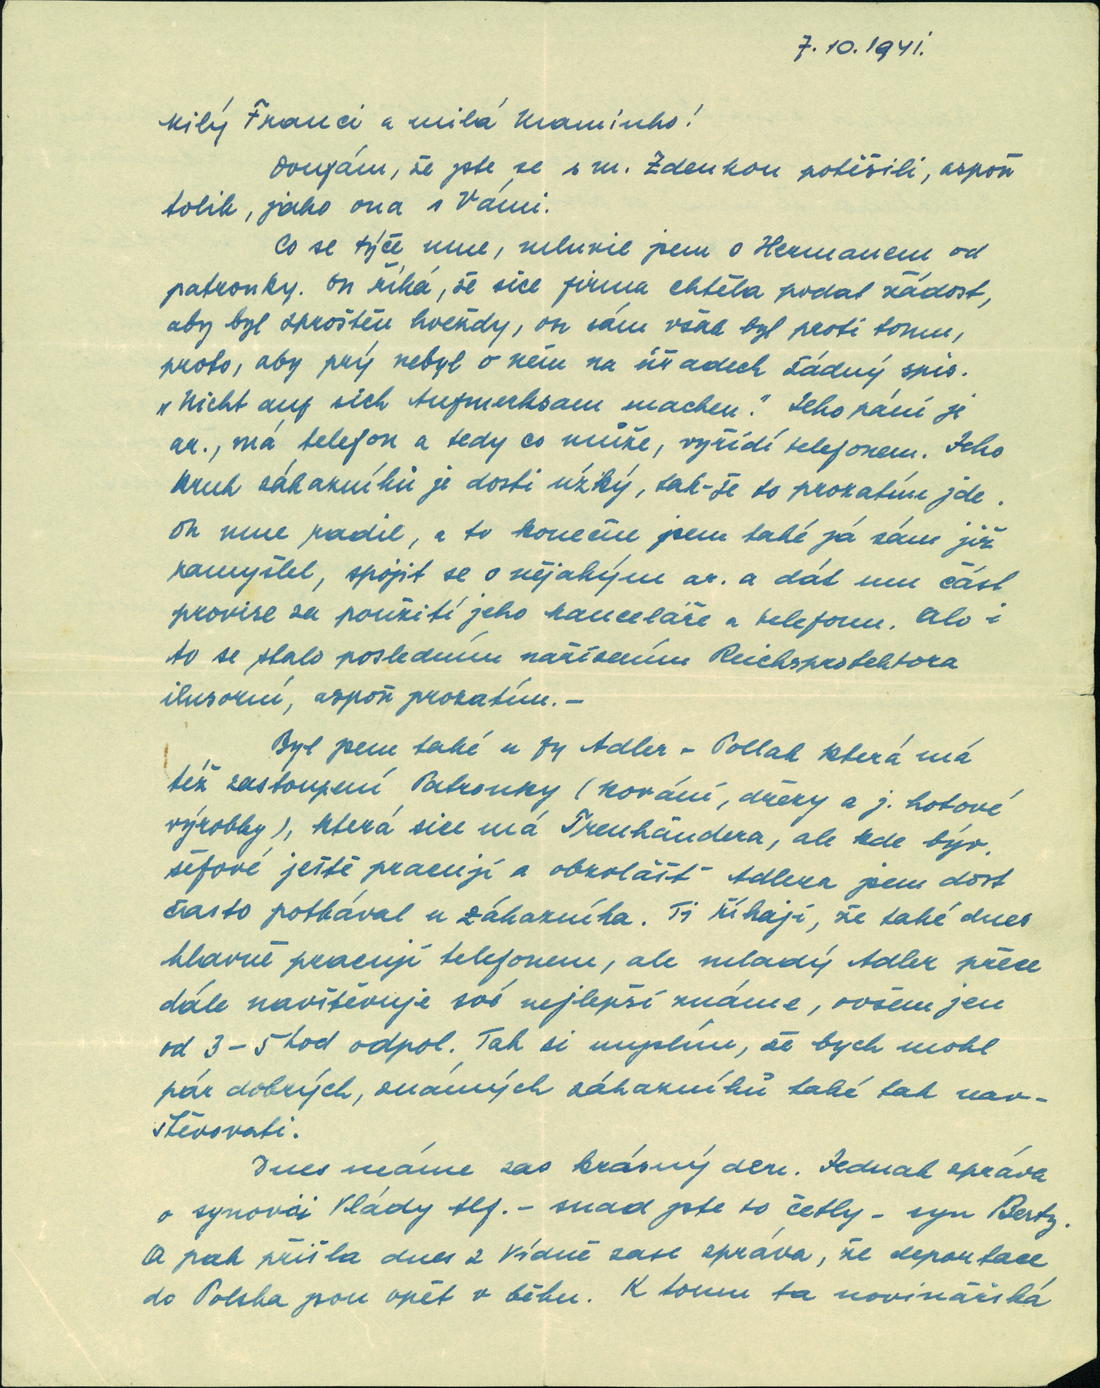 7.10.1941.
Milý Franci a milá maminko!
Doufám, že jste se s m. Zdenkou potěšili, aspoň
tolik, jako ona s Vámi.
Co se týče mne, mluvil jsem s Hermanem od
patronky. On říká, že sice firma chtěla podat žádost,
aby byl zproštěn hvězdy, on sám však byl proti tomu,
proto, aby prý nebyl o něm na úřadech žádný spis.
"Nicht auf sich Aufmerksam machen." Jeho paní je
ar., má telefon a tedy co může, vyřídí telefonem. Jeho
kruh zákazníků je dosti úzký, tak-že to prozatím jde.
On mne radil, a to konečně jsem také já sám již
zamýšlel, spojit se s nějakým ar. a dát mu část
provise za použití jeho kanceláře a telefonu. Ale i
to se stalo posledním nařízením Reichsprotektora
ilusorní, aspoň prozatím. –
Byl jsem také u fy Adler - Pollak která má
též zastoupení Patronky (kování, dřezy a j. hotové
výrobky), která sice má Treuhändera, ale kde býv.
šéfové ještě pracují a obzvlášť Adlera jsem dost
často potkával u zákazníka. Ti říkají, že také dnes
hlavně pracují telefonem, ale mladý Adler přece
dále navštěvuje své nejlepší známé, ovšem jen
od 3 – 5 hod odpol. Tak si myslím, že bych mohl
pár dobrých, známých zákazníků také tak nav-
štěvovati.
Dnes máme zas krásný den. Jednak zpráva
o synovci Vlády – snad jste to četly – syn
A pak přišla dnes z Vídně zase zpráva, že deportace
do Polska jsou opět v běhu. K tomu ta novinářská